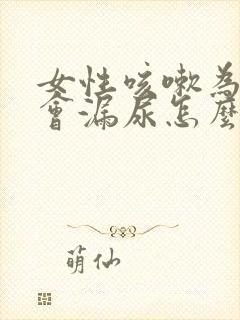 女性咳嗽為
會漏尿怎麼
萌仙